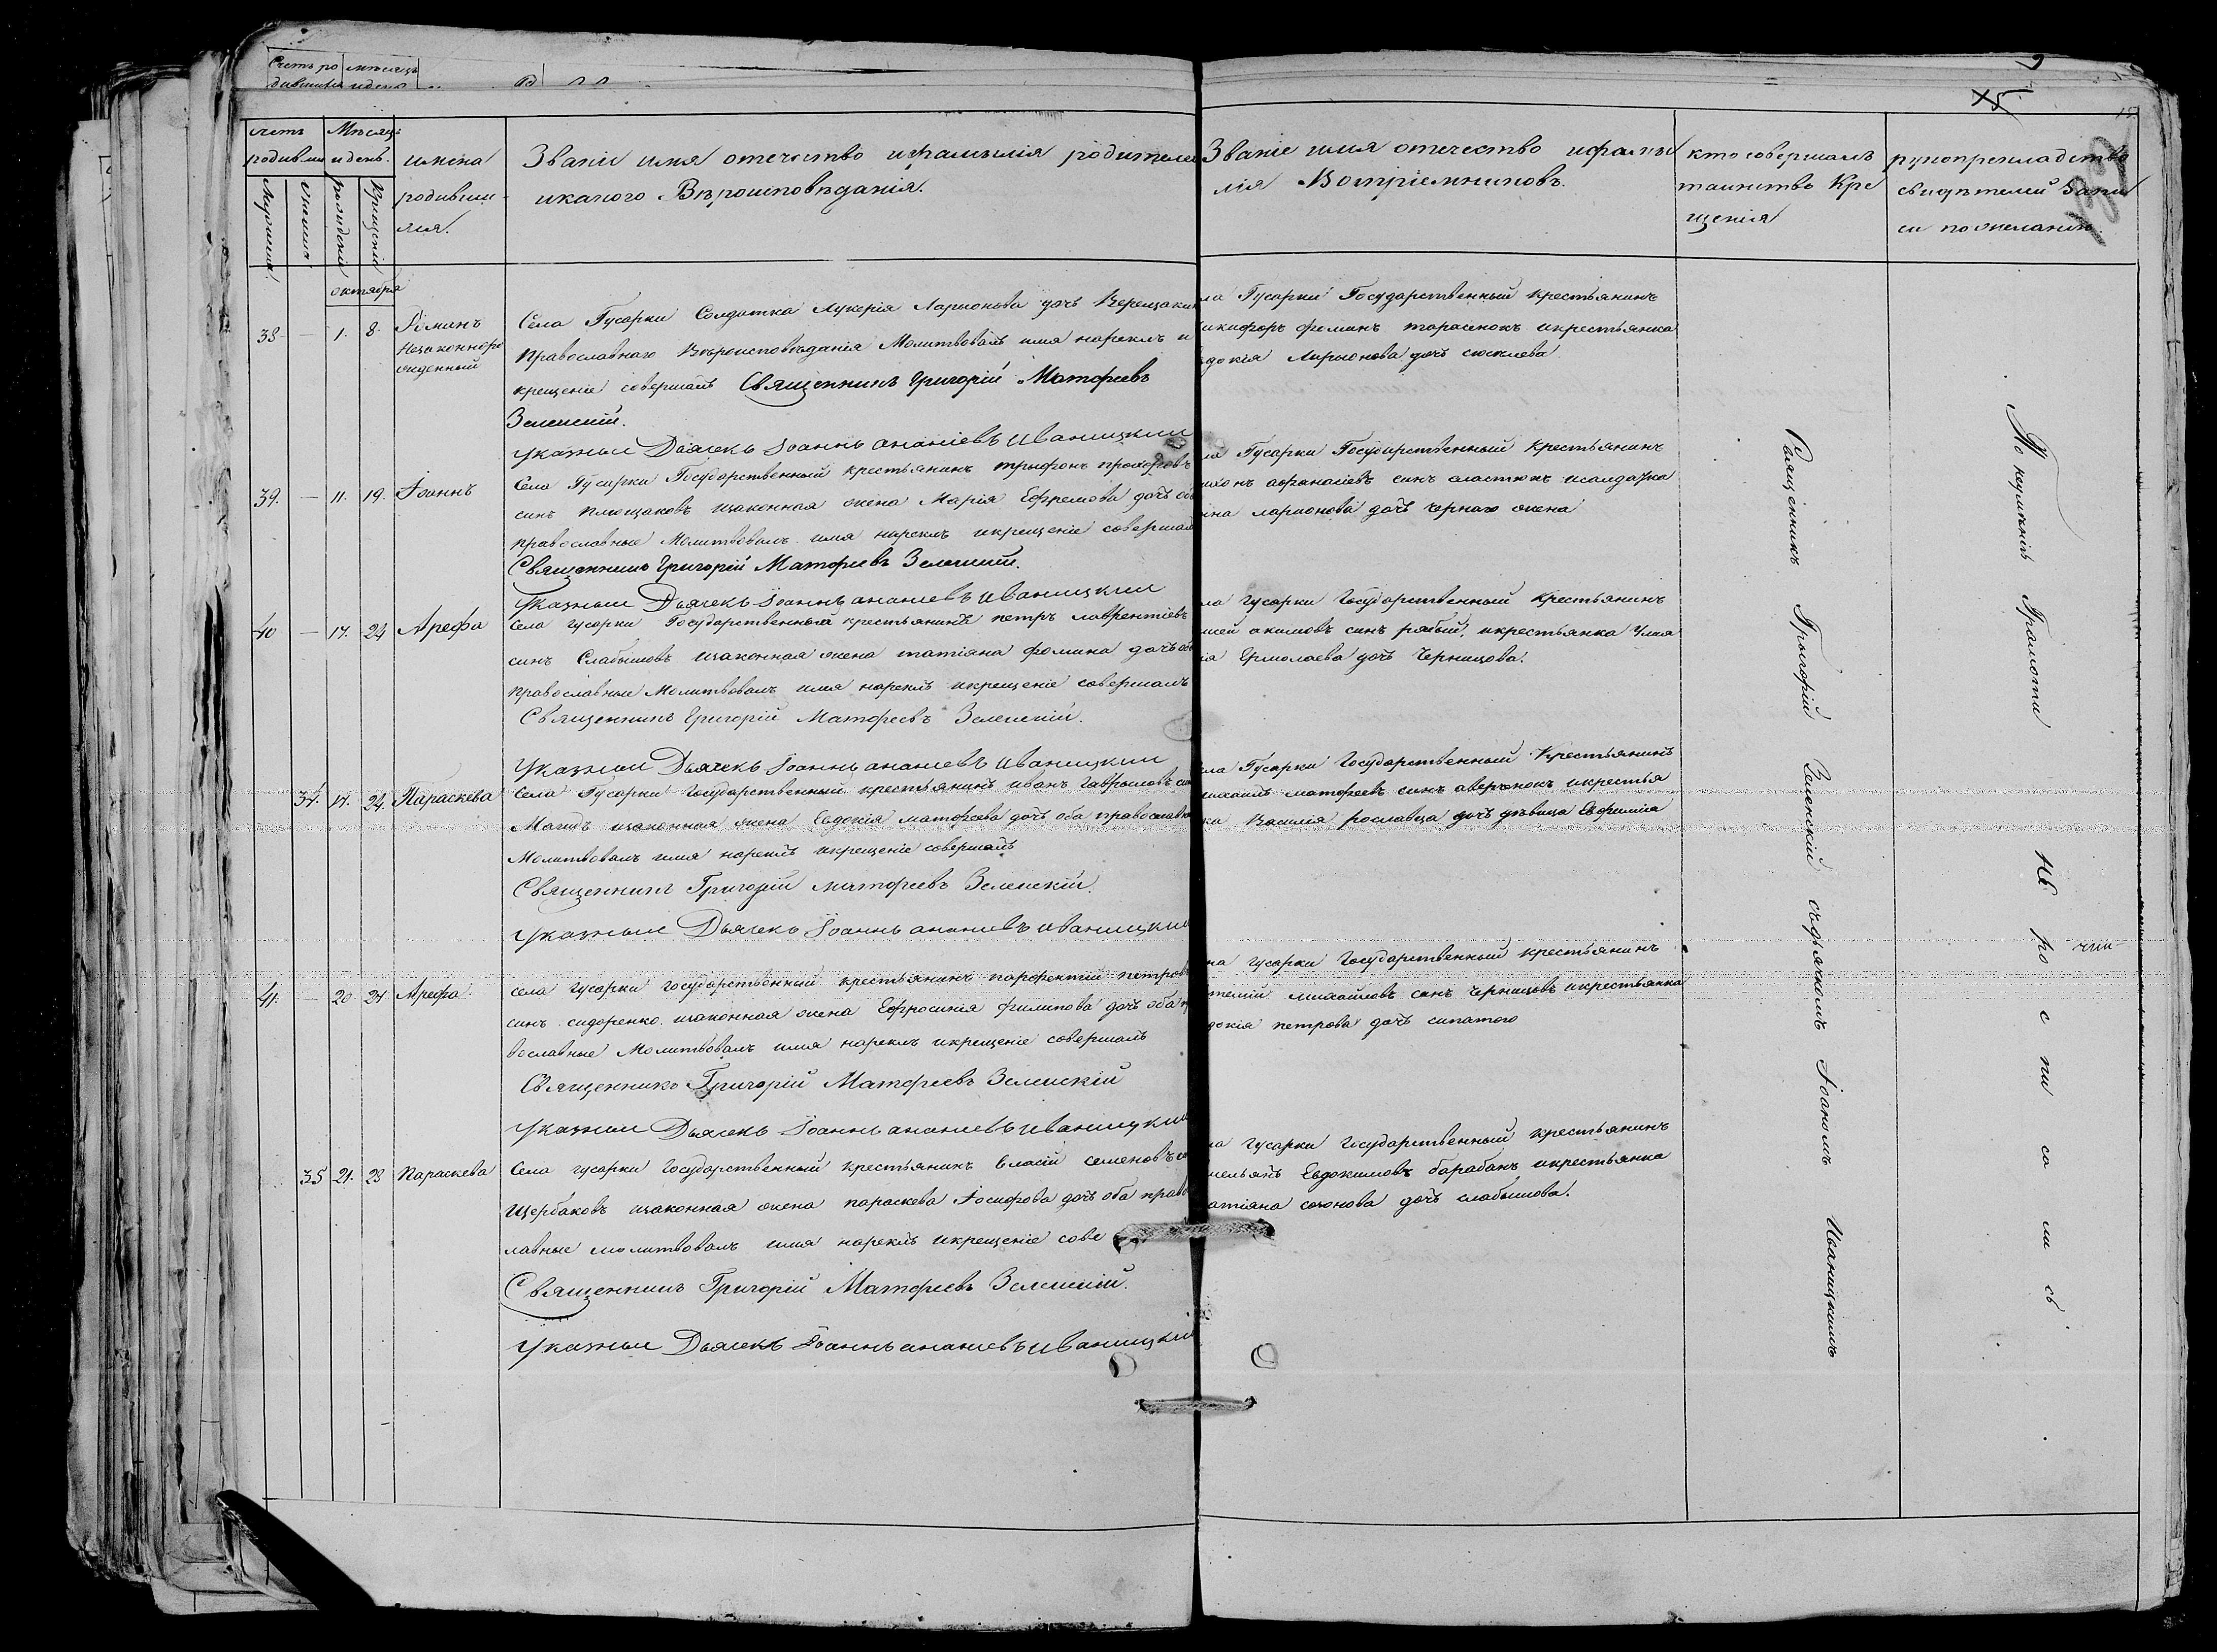 Счетъ ро мѣсяцъ
дившихся и день
счетъ Мѣсяцъ
родивши и день.
Мужеска
женска
рожденія
Крещенія
имена
родивши
хся.
Званіе имя отечество ифамилія родителей
икакого Вѣроисповѣданія.
Званіе имя отечество ифами
лія Воспріемниковъ.
кто совершалъ
таинство Кре
щенія
рукоприкладство
свидѣтелей Запи
си по желанію.
15
октября
38 — 1. 8. Романъ
Незаконноро
жденный
Села Гусарки Солдатка Лукерія Ларионова дочь Верещакина
Православнаго Вѣроисповѣданія Молитвовалъ имя нарекъ и
крещеніе совершалъ Священникъ Григорій Матфеевъ
Зеленскій.
указный Дьячекъ Іоаннъ ананіевъ иваницкий
ла Гусарки Государственный крестьянинъ
икифоръ тарасенокъ икрестьянка
докія Ларионова дочь
39. — 11. 19. Іоаннъ
Села Гусарки Государственный крестьянинъ трыфонъ прохоровъ
синъ Плющаковъ изаконная жена Марія Ефремова дочь об
православные Молитвовалъ имя нарекъ икрещеніе совершалъ
Священникъ Григорій Матфеевъ Зеленскій.
Указный Дьячекъ Іоаннъ ананиевъ иваницкий
ла Гусарки Государственный Крестьянинъ
ихонъ афанасіевъ синъ исолдатка
нна ларионова дочь чернаго жена
40 — 17. 24 Арефа
Села гусарки Государственный крестьянинъ петръ лаврентіевъ
синъ Слабышовъ изаконная жена татіяна фомина дочь об
православные Молитвовалъ имя нарекъ икрещеніе совершалъ
Священникъ Григорій Матфеевъ Зеленскій.
Указный Дьячекъ Іоаннъ ананіевъ иваницкий
ла гусарки Государственный Крестьянинъ
сей акимовъ синъ рябый, икрестьянка
ія Ермолаева дочь Чернцова.
34. 17. 24. Параскева
Села Гусарки Государственный крестьянинъ иванъ Гавриловъ син
изаконная жена Евдокія матфеева дочь оба православн
Молитвовалъ имя нарекъ икрещеніе совершалъ
Священникъ Григорій матфеевъ Зеленскій.
указный Дьячекъ Іоаннъ ананиевъ иваницкий
ла Гусарки Государственный Крестьянинъ
ихаилъ матфеевъ синъ аверчнокъ икрестья
ка Василія рославца дочь дѣвица Евфимия
41. — 20 24 Арефа.
села гусарки государственный крестьянинъ парфентій петровъ
синъ сидоренко изаконная жена Ефросинія филипова дочь оба пр
вославные Молитвовалъ имя нарекъ икрещеніе совершалъ
Священникъ Григорій Матфеевъ Зеленскій
указный Дьячекъ Іоаннъ ананиевъ иваницкий
ла гусарки Государственный крестьянинъ
михайловъ синъ Чернцовъ икрестьянка
докія петрова дочь сипатого
35 21. 28 Параскева
Села гусарки Государственный крестьянинъ Власій семеновъ с
Щербаковъ изаконная жена параскева Іосифова дочь оба право
лавные молитвовалъ имя нарекъ икрещеніе сове
Священникъ Григорій Матфеевъ Зеленскій.
указный Дьячекъ Іоаннъ ананиевъ иваницкий
ла гусарки Государственный крестьянинъ
мельянъ Евдокимовъ барабанъ икрестьянка
атіяна дочь слабышова.
Священникъ Грыгорій Зеленскій съдьячкомъ Іоаномъ Иваницкимъ
По неумѣнію Грамоти не ро с пи са ли сь